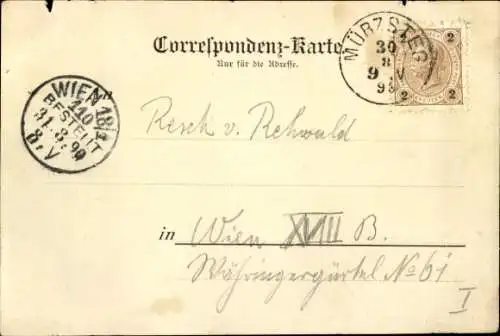 Correspondenz-Karte.
Nur für die Adresse.
MÜRZSTEG
30
8
9 V
99
2 2
2 2
WIEN 18/1
110
BESTELLT
31. 8. 99
8. V
Resch v. Rehwald
in Wien XVIII B.
Währingergürtel No 61
I